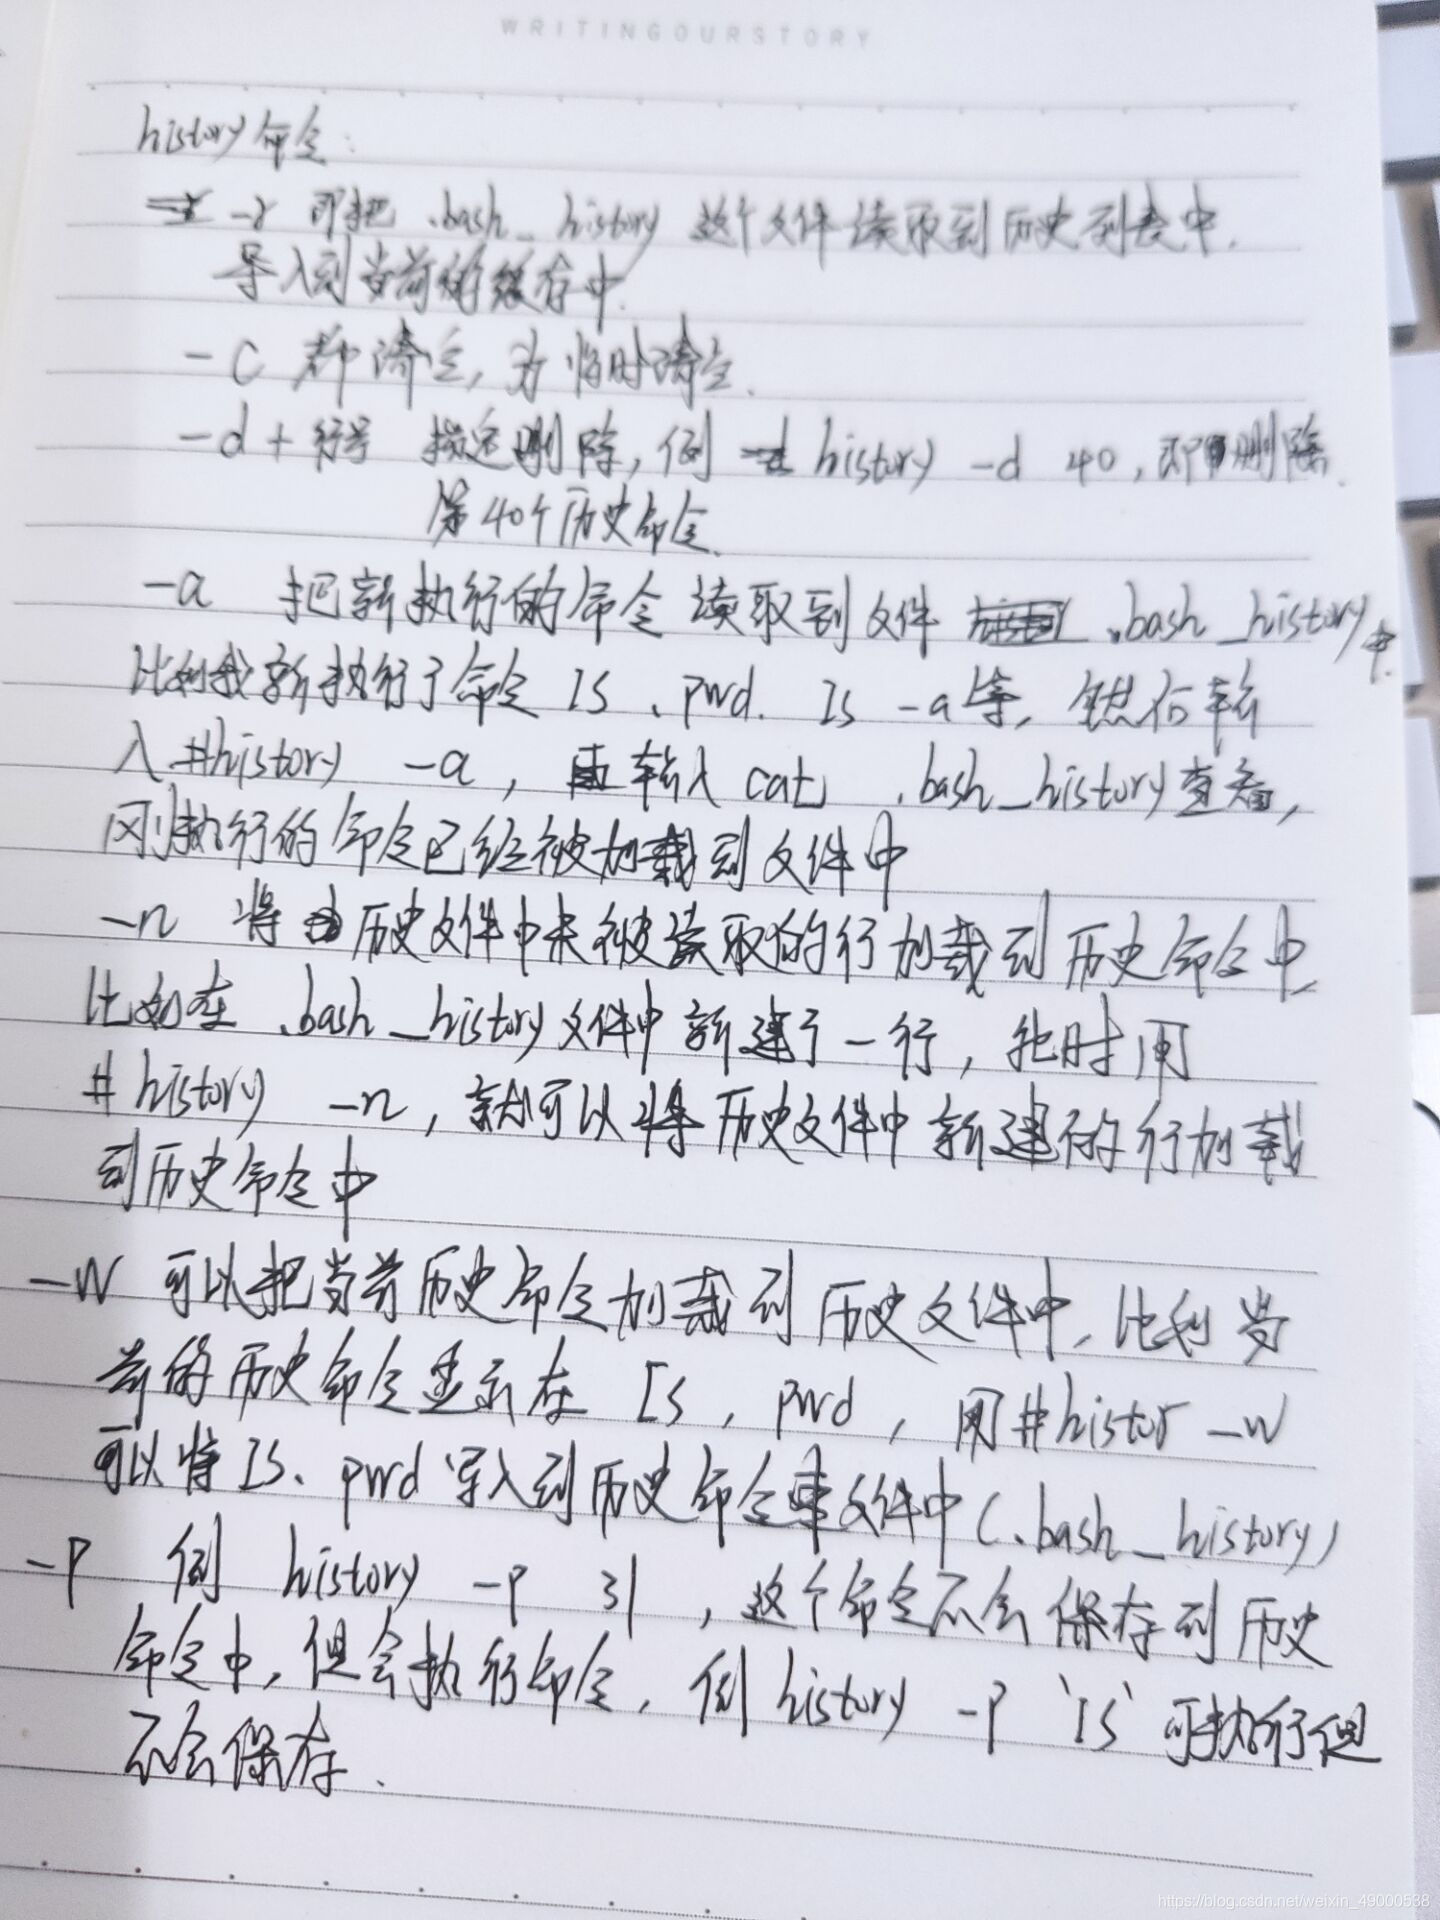 WRITINGOURSTORY
history命令:
-r 即把 .bash_history 这个文件读取到历史列表中,
导入到当前的缓存中.
-c 都清空, 为临时清空.
-d + 行号 指定删除, 例 history -d 40, 即删除
第40个历史命令.
-a 把新执行的命令读取到文件 .bash_history中.
比如我新执行了命令 ls、pwd. ls -a等, 然后输
入#history -a, 再输入cat .bash_history查看,
刚执行的命令已经被加载到文件中
-n 将历史文件中未被读取的行加载到历史命令中,
比如在 .bash_history文件中新建了一行, 此时用
# history -n, 就可以将历史文件中新建的行加载
到历史命令中
-w 可以把当前历史命令加载到历史文件中, 比利当
前的历史命令显示在 ls, pwd, 用#histor -w
可以将ls、pwd写入到历史命令文件中(.bash_history)
-P 例 history -P 31, 这个命令不会保存到历史
命令中, 但会执行命令, 例 history -P `ls` 可执行但
不会保存.
https://blog.csdn.net/weixin_49000538